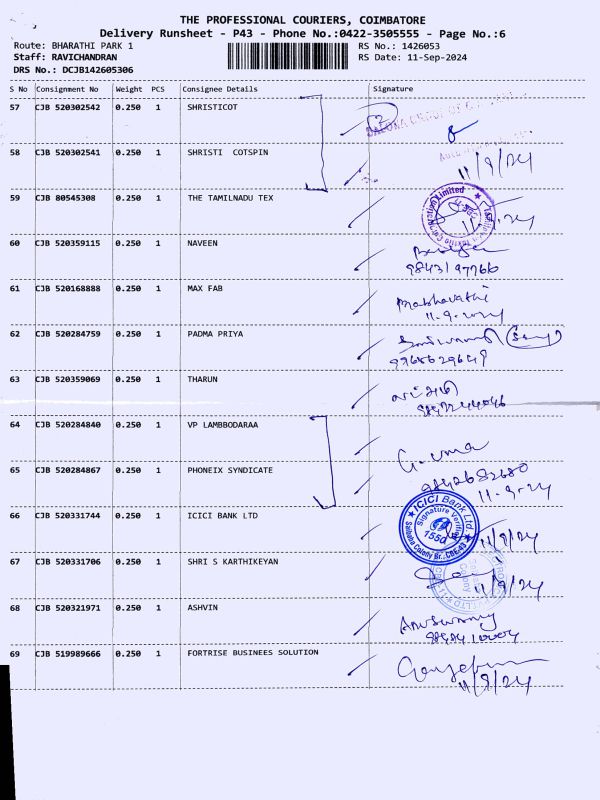 THE PROFESSIONAL COURIERS, COIMBATORE
Delivery Runsheet - P43 - Phone No.:0422-3505555 - Page No.:6
Route: BHARATHI PARK 1 RS No.: 1426053
Staff: RAVICHANDRAN RS Date: 11-Sep-2024
DRS No.: DCJB142605306
S No Consignment No Weight PCS Consignee Details Signature
57 CJB 520302542 0.250 1 SHRISTICOT
58 CJB 520302541 0.250 1 SHRISTI COTSPIN 11/9/24
59 CJB 80545308 0.250 1 THE TAMILNADU TEX
60 CJB 520359115 0.250 1 NAVEEN
9843197766
61 CJB 520168888 0.250 1 MAX FAB Prabhavathi
11.9.2024
62 CJB 520284759 0.250 1 PADMA PRIYA
63 CJB 520359069 0.250 1 THARUN
64 CJB 520284840 0.250 1 VP LAMBBODARAA G. uma
65 CJB 520284867 0.250 1 PHONEIX SYNDICATE 9842682680
11-9-24
66 CJB 520331744 0.250 1 ICICI BANK LTD ICICI Bank Ltd. Signature Verified 1550 Saibaba Colony Br., CBE-43 11/9/24
67 CJB 520331706 0.250 1 SHRI S KARTHIKEYAN 11/9/24
68 CJB 520321971 0.250 1 ASHVIN
69 CJB 519989666 0.250 1 FORTRISE BUSINEES SOLUTION
11/9/24